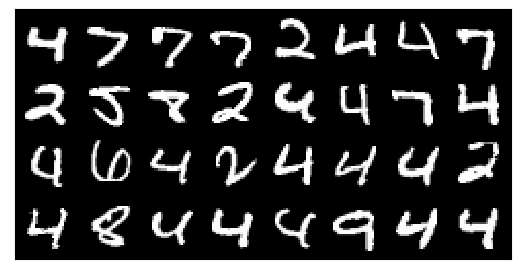 4 7 7 7 2 4 4 7
2 5 8 2 4 4 7 4
4 6 4 2 4 4 4 2
4 8 4 4 4 9 4 4